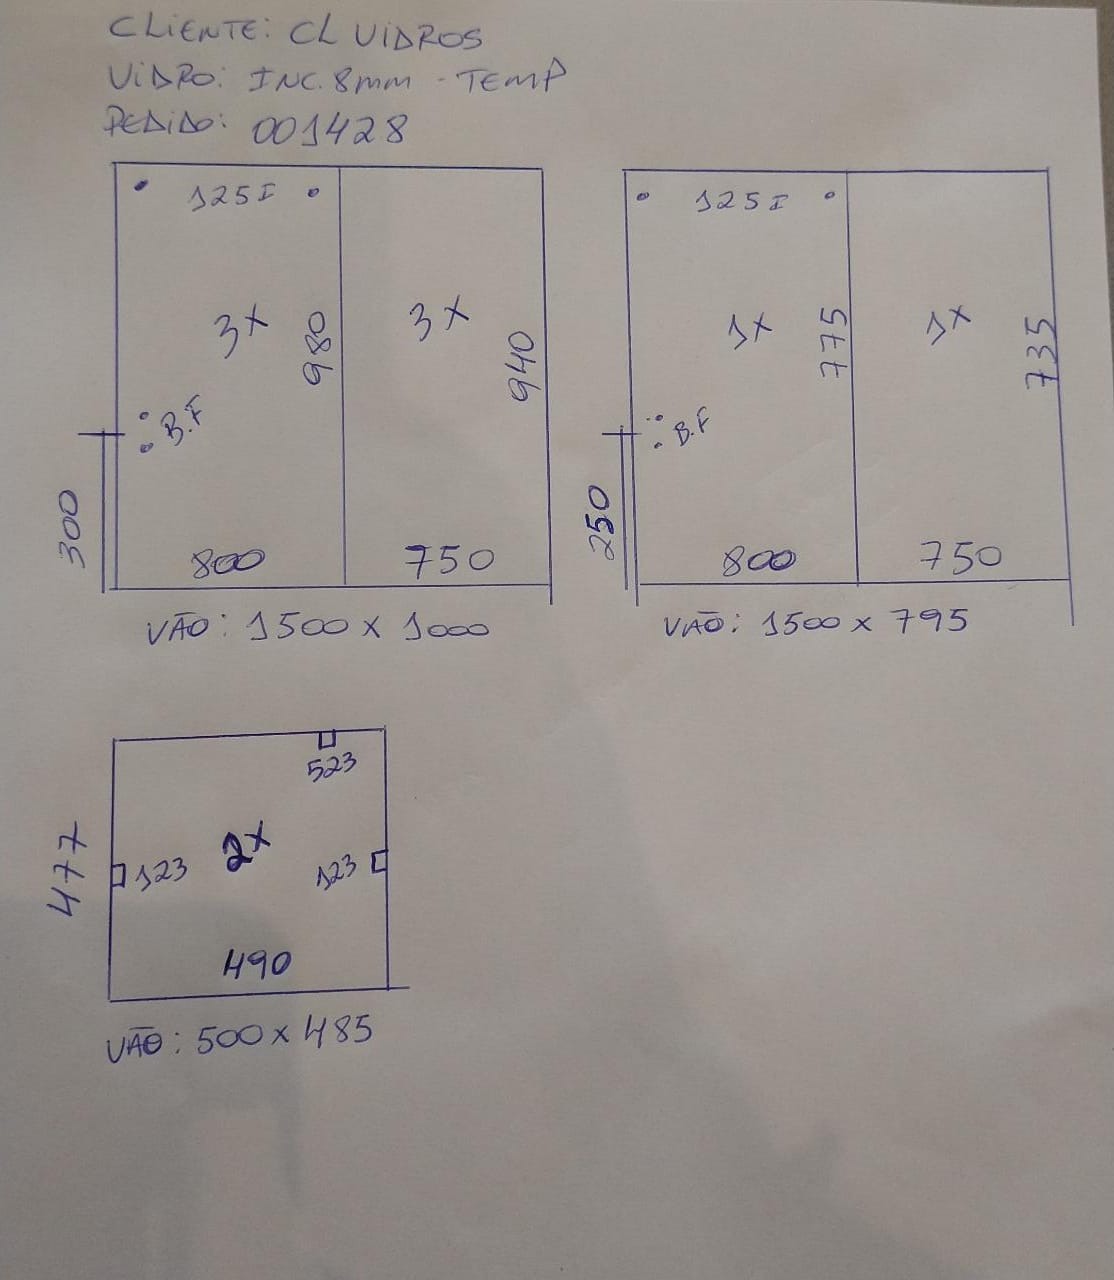 CLIENTE: CL VIDROS
VIDRO: INC. 8mm - TEMP
PEDIDO: 001428
125I
3X
980
3X
940
B.F
300
800
750
VÃO: 1500 X 1000
125I
1X
775
1X
735
B.F
250
800
750
VÃO: 1500 X 795
523
2X
477
123
123
490
VÃO: 500 X 485